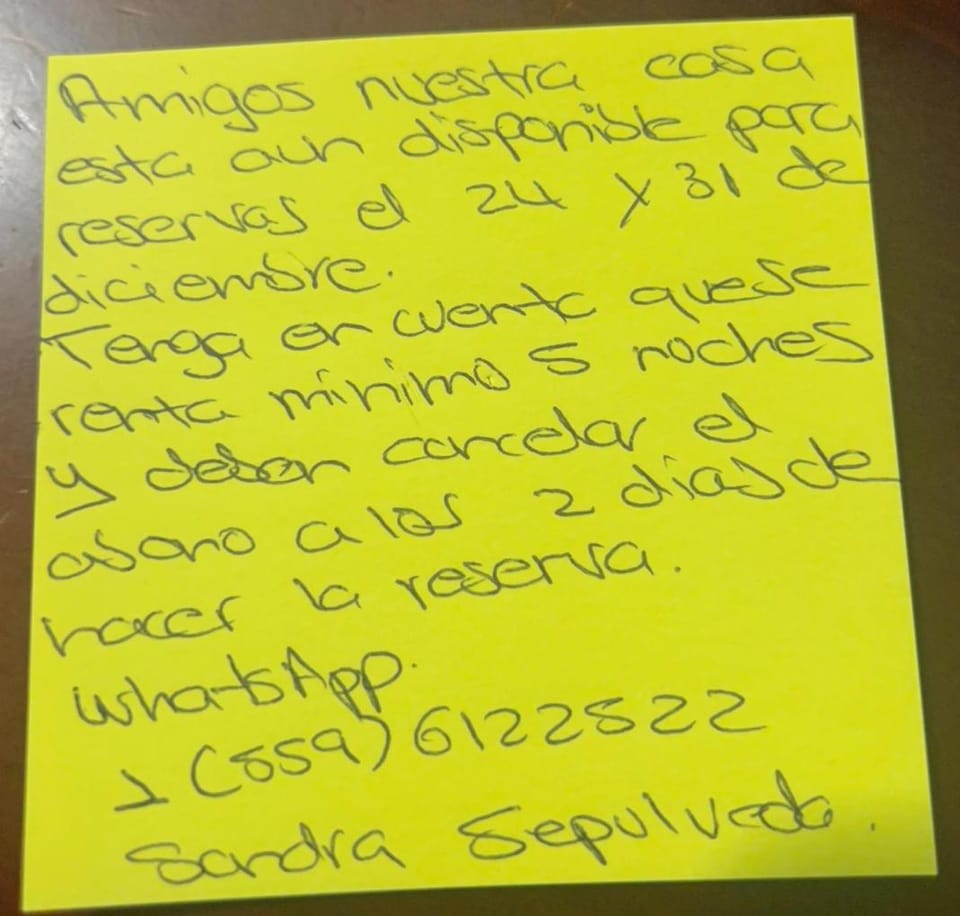 Amigos nuestra casa
esta aun disponible para
reservas el 24 y 31 de
diciembre.
Tenga en cuenta que se
renta mínimo 5 noches
y deben cancelar el
abono a los 2 días de
hacer la reserva.
WhatsApp.
1 (559) 6122522
Sandra Sepulveda.